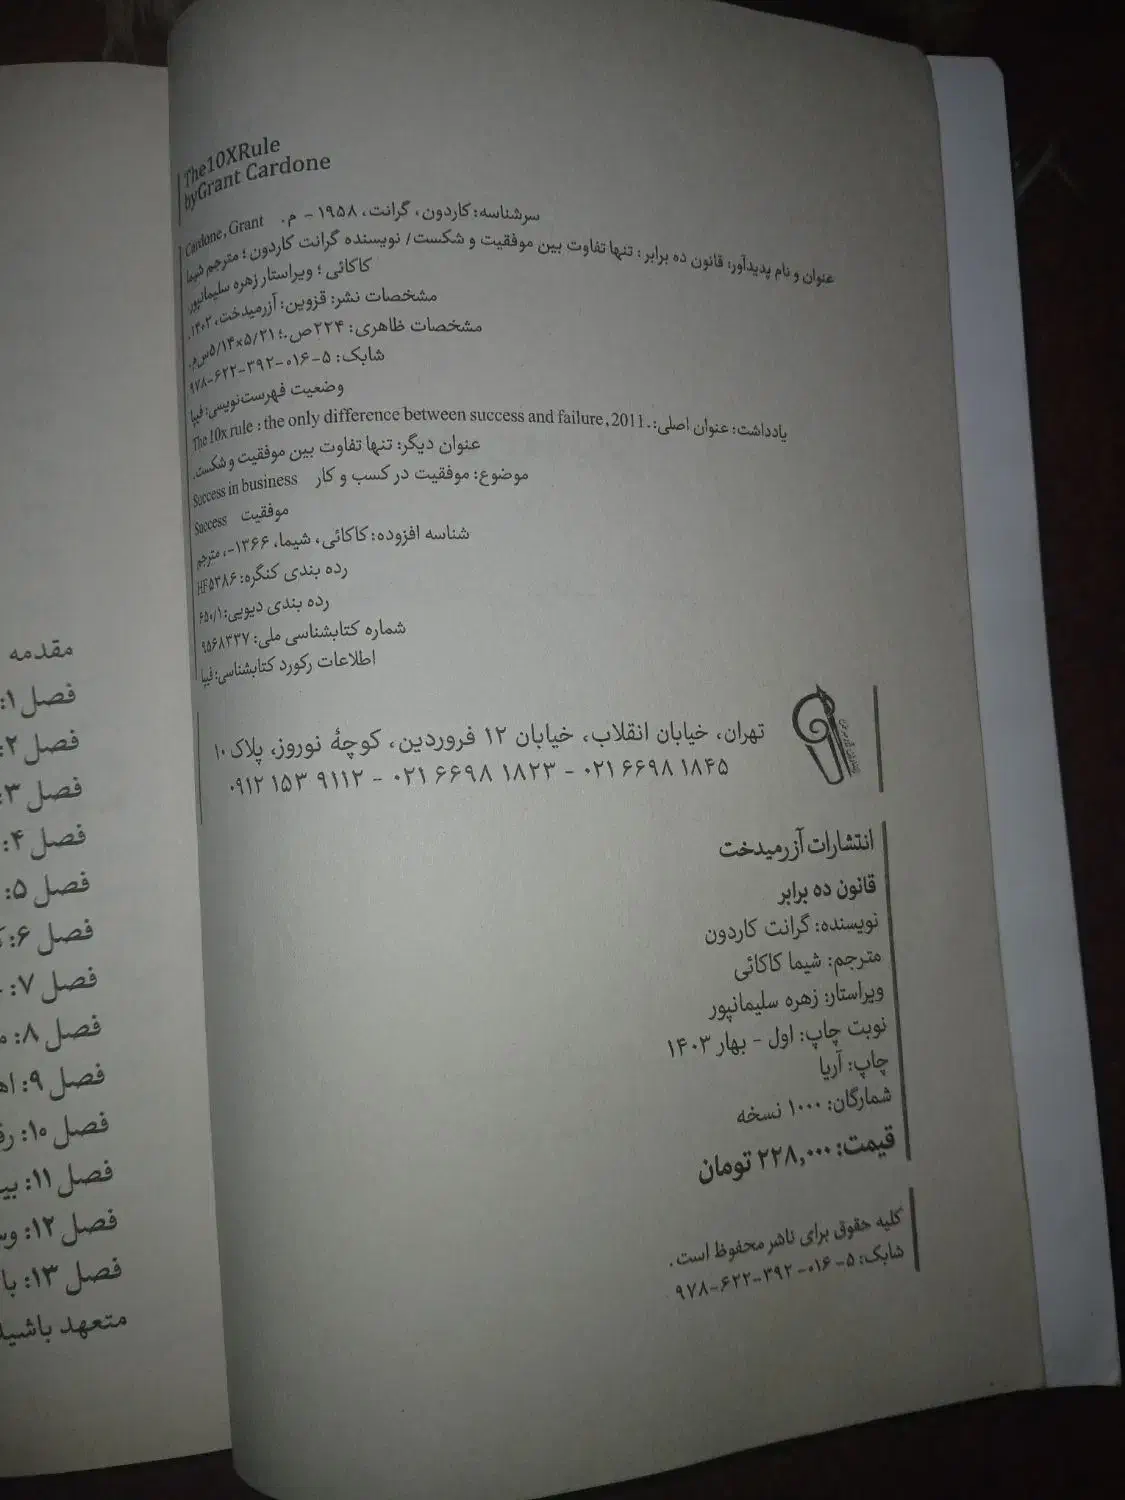 The10XRule
byGrant Cardone
سرشناسه: کاردون، گرانت، ۱۹۵۸ - م. Cardone, Grant
عنوان و نام پدیدآور: قانون ده برابر : تنها تفاوت بین موفقیت و شکست/ نویسنده گرانت کاردون ؛ مترجم شیما
کاکائی ؛ ویراستار زهره سلیمانپور.
مشخصات نشر: قزوین: آزرمیدخت، ۱۴۰۲.
مشخصات ظاهری: ۲۲۴ص.؛ ۵/۱۴×۵/۲۱س‌م.
شابک: ۵-۰۱۶-۳۹۲-۶۲۲-۹۷۸
وضعیت فهرست‌نویسی: فیپا
یادداشت: عنوان اصلی: .The 10x rule : the only difference between success and failure, 2011
عنوان دیگر: تنها تفاوت بین موفقیت و شکست.
موضوع: موفقیت در کسب و کار Success in business
موفقیت Success
شناسه افزوده: کاکائی، شیما، ۱۳۶۶-، مترجم
رده بندی کنگره: HF۵۳۸۶
رده بندی دیویی: ۶۵۰/۱
شماره کتابشناسی ملی: ۹۵۶۸۳۳۷
اطلاعات رکورد کتابشناسی: فیپا
تهران، خیابان انقلاب، خیابان ۱۲ فروردین، کوچهٔ نوروز، پلاک ۱۰
۰۲۱ ۶۶۹۸ ۱۸۴۵ - ۰۲۱ ۶۶۹۸ ۱۸۲۳ - ۰۹۱۲ ۱۵۳ ۹۱۱۲
انتشارات آزرمیدخت
قانون ده برابر
نویسنده: گرانت کاردون
مترجم: شیما کاکائی
ویراستار: زهره سلیمانپور
نوبت چاپ: اول - بهار ۱۴۰۳
چاپ: آریا
شمارگان: ۱۰۰۰ نسخه
قیمت: ۲۲۸,۰۰۰ تومان
کلیه حقوق برای ناشر محفوظ است.
شابک: ۵-۰۱۶-۳۹۲-۶۲۲-۹۷۸
مقدمه
فصل ۱:
فصل ۲:
فصل ۳:
فصل ۴:
فصل ۵:
فصل ۶:
فصل ۷:
فصل ۸:
فصل ۹:
فصل ۱۰:
فصل ۱۱:
فصل ۱۲:
فصل ۱۳: با
متعهد باشید